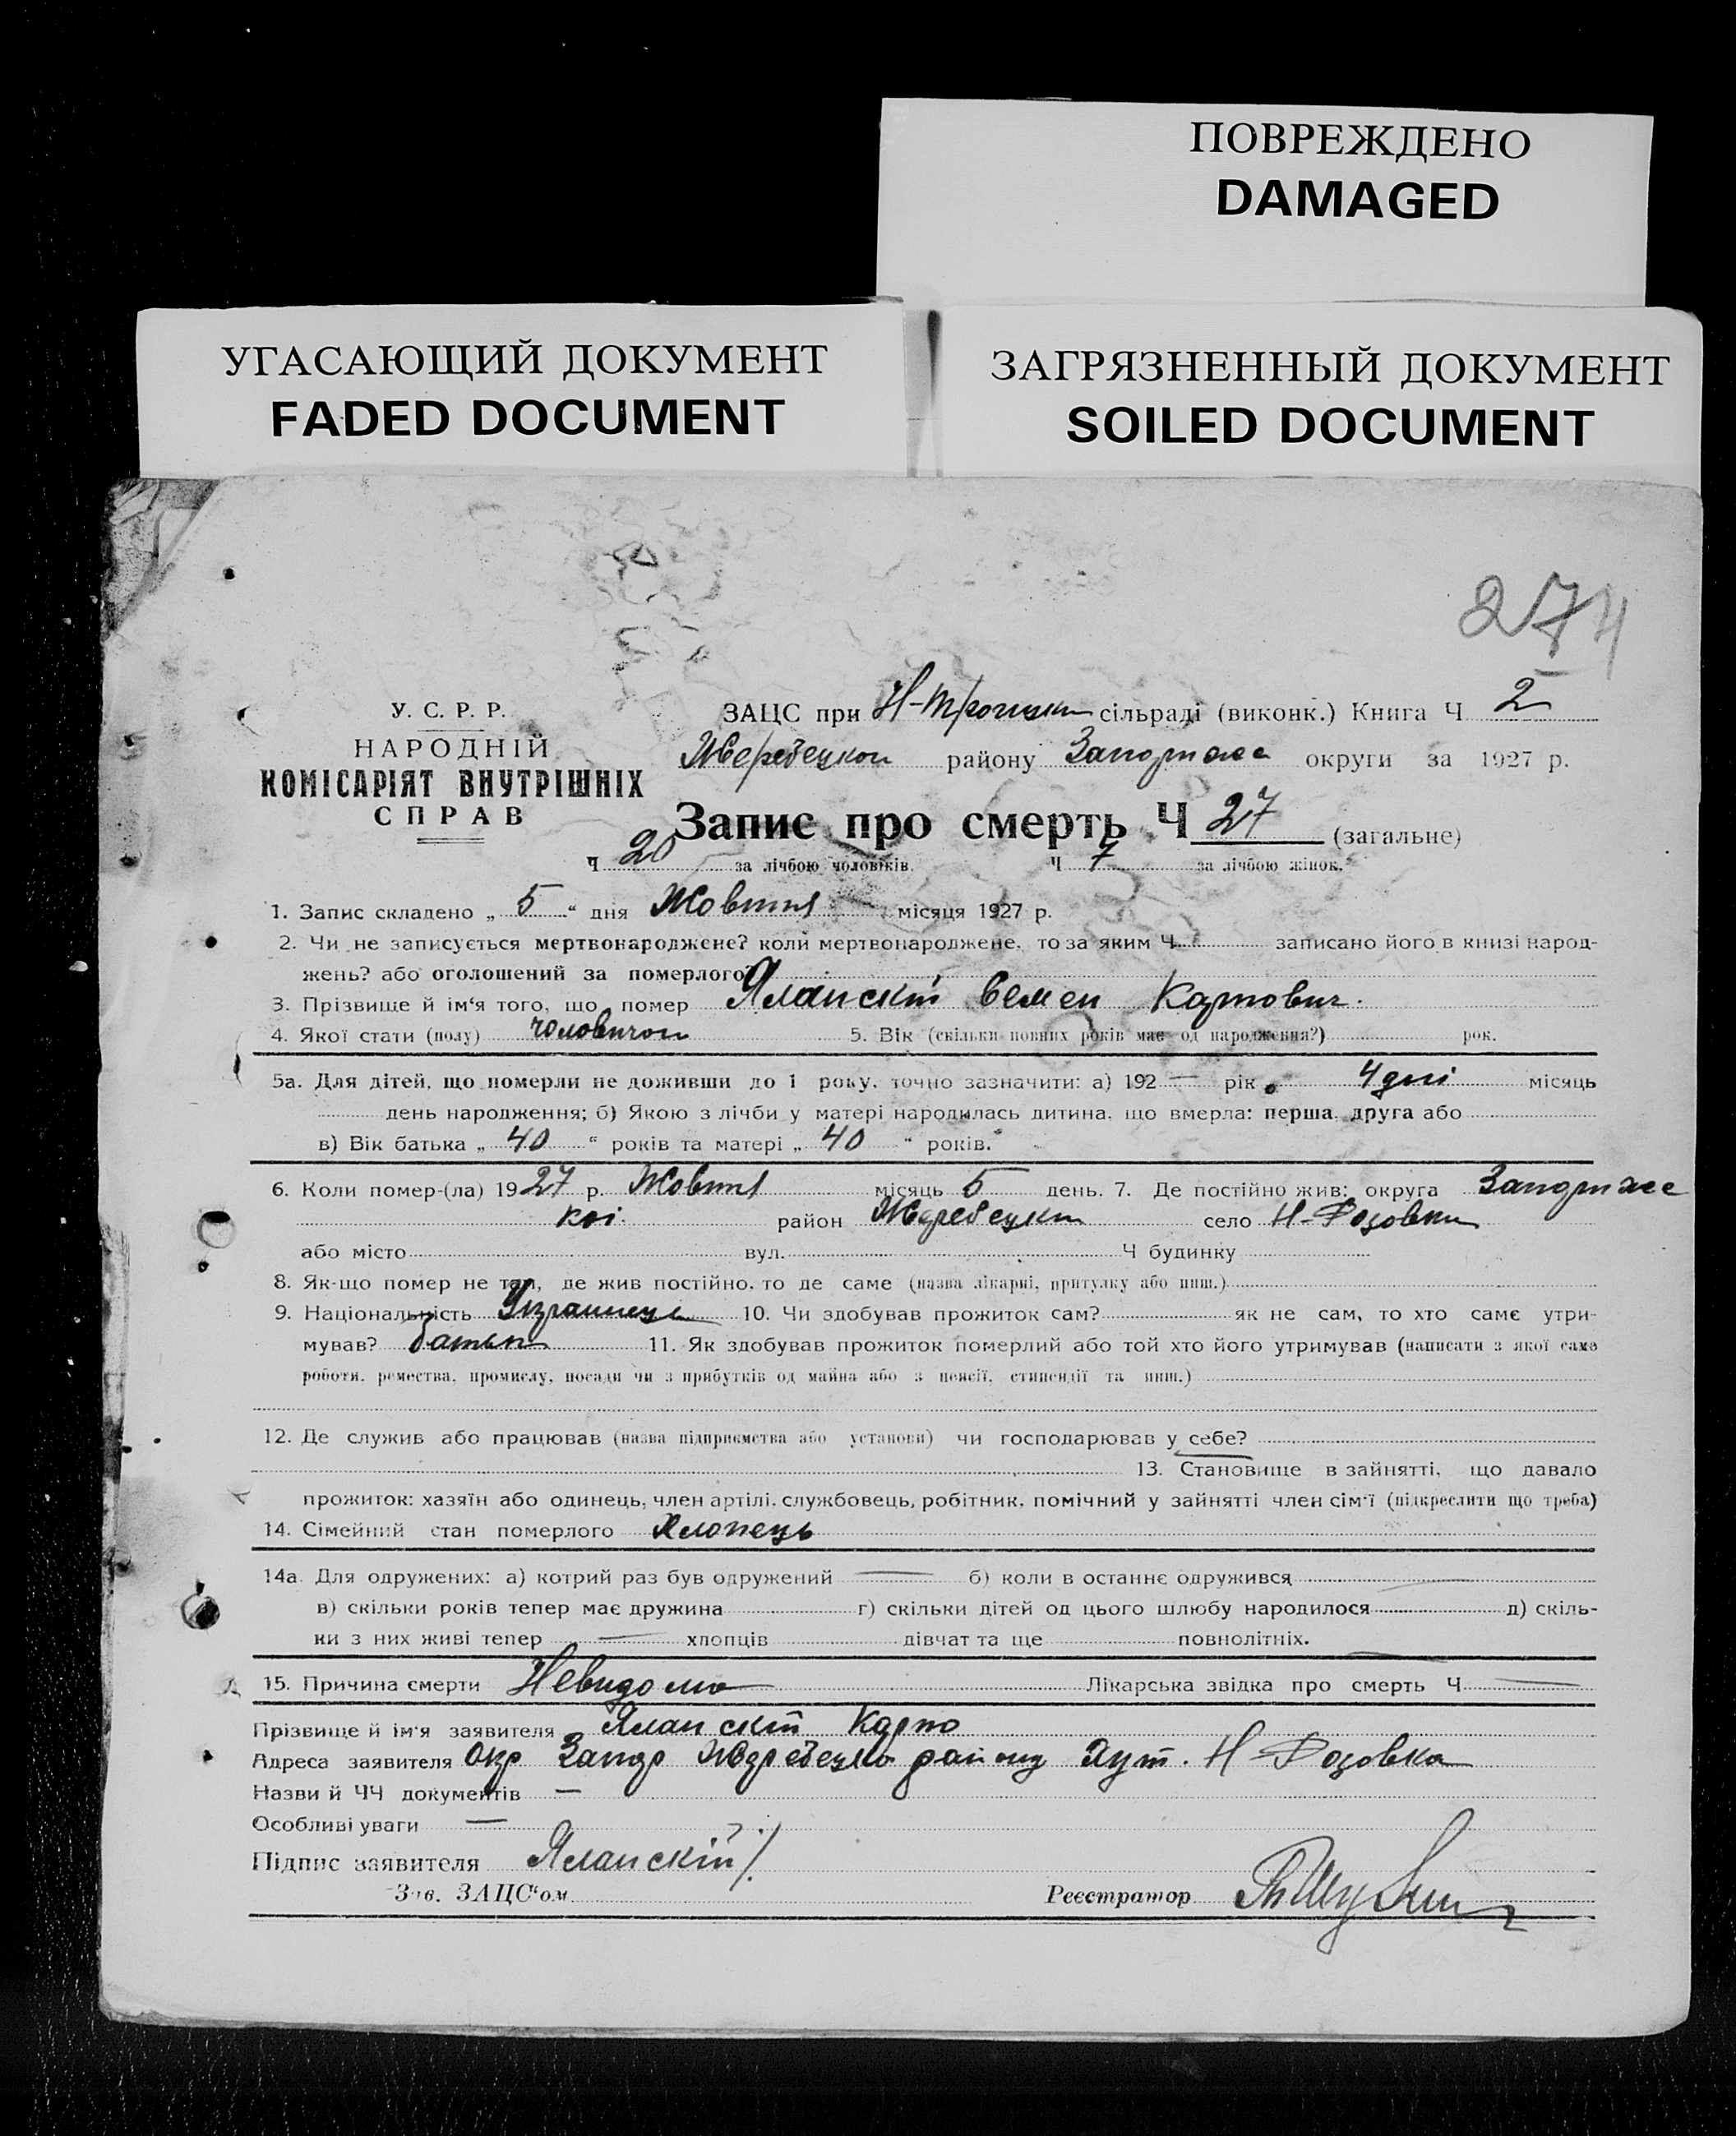 ПОВРЕЖДЕНО
DAMAGED
УГАСАЮЩИЙ ДОКУМЕНТ
FADED DOCUMENT
ЗАГРЯЗНЕННЫЙ ДОКУМЕНТ
SOILED DOCUMENT
274
У. С. Р. Р.
НАРОДНІЙ
КОМІСАРІЯТ ВНУТРІШНІХ
СПРАВ
ЗАЦС при Н-Троицкій сільраді (виконк.) Книга Ч 2
району округи за 1927 р.
Запис про смерть Ч 27 (загальне)
Ч 20 за лічбою чоловіків. Ч 7 за лічбою жінок.
1. Запис складено „ 5 “ дня Жовтня місяця 1927 р.
2. Чи не записується мертвонароджене? коли мертвонароджене, то за яким Ч. записано його в книзі народ-
жень? або оголошений за померлого?
3. Прізвище й ім‘я того, що помер Яланскій Семен Карпович.
4. Якої стати (полу) 5. Вік (скільки повних років має од народження?) рок.
5а. Для дітей, що померли не доживши до 1 року, точно зазначити: а) 192 — рік 4 дні місяць
день народження; б) Якою з лічби у матері народилась дитина, що вмерла: перша, друга або
в) Вік батька „ 40 “ років та матері „ 40 “ років.
6. Коли помер-(ла) 1927 р. Жовтня місяць 5 день. 7. Де постійно жив: округа
кої район село
або місто вул. Ч будинку
8. Як-що помер не там, де жив постійно, то де саме (назва лікарні, притулку або инш.)
9. Національність Українець 10. Чи здобував прожиток сам? як не сам, то хто саме утри-
мував? батько 11. Як здобував прожиток померлий або той хто його утримував (написати з якої саме
роботи, ремества, промислу, посади чи з прибутків од майна або з пенсії, стипендії та инш.)
12. Де служив або працював (назва підприємства або установи) чи господарював у себе?
13. Становище в зайнятті, що давало
прожиток: хазяїн або одинець, член артілі, службовець, робітник, помічний у зайнятті член сім‘ї (підкреслити що треба)
14. Сімейний стан померлого Хлопець
14а. Для одружених: а) котрий раз був одружений — б) коли в останнє одружився
в) скільки років тепер має дружина г) скільки дітей од цього шлюбу народилося д) скіль-
ки з них живі тепер — хлопців дівчат та ще повнолітніх.
15. Причина смерти Невидомо Лікарська звідка про смерть Ч —
Прізвище й ім‘я заявителя Яланскій Карпо
Адреса заявителя Окр Запор району Хут.
Назви й ЧЧ документів —
Особливі уваги —
Підпис заявителя Яланскій
Зав. ЗАЦС‘ом
Реєстратор